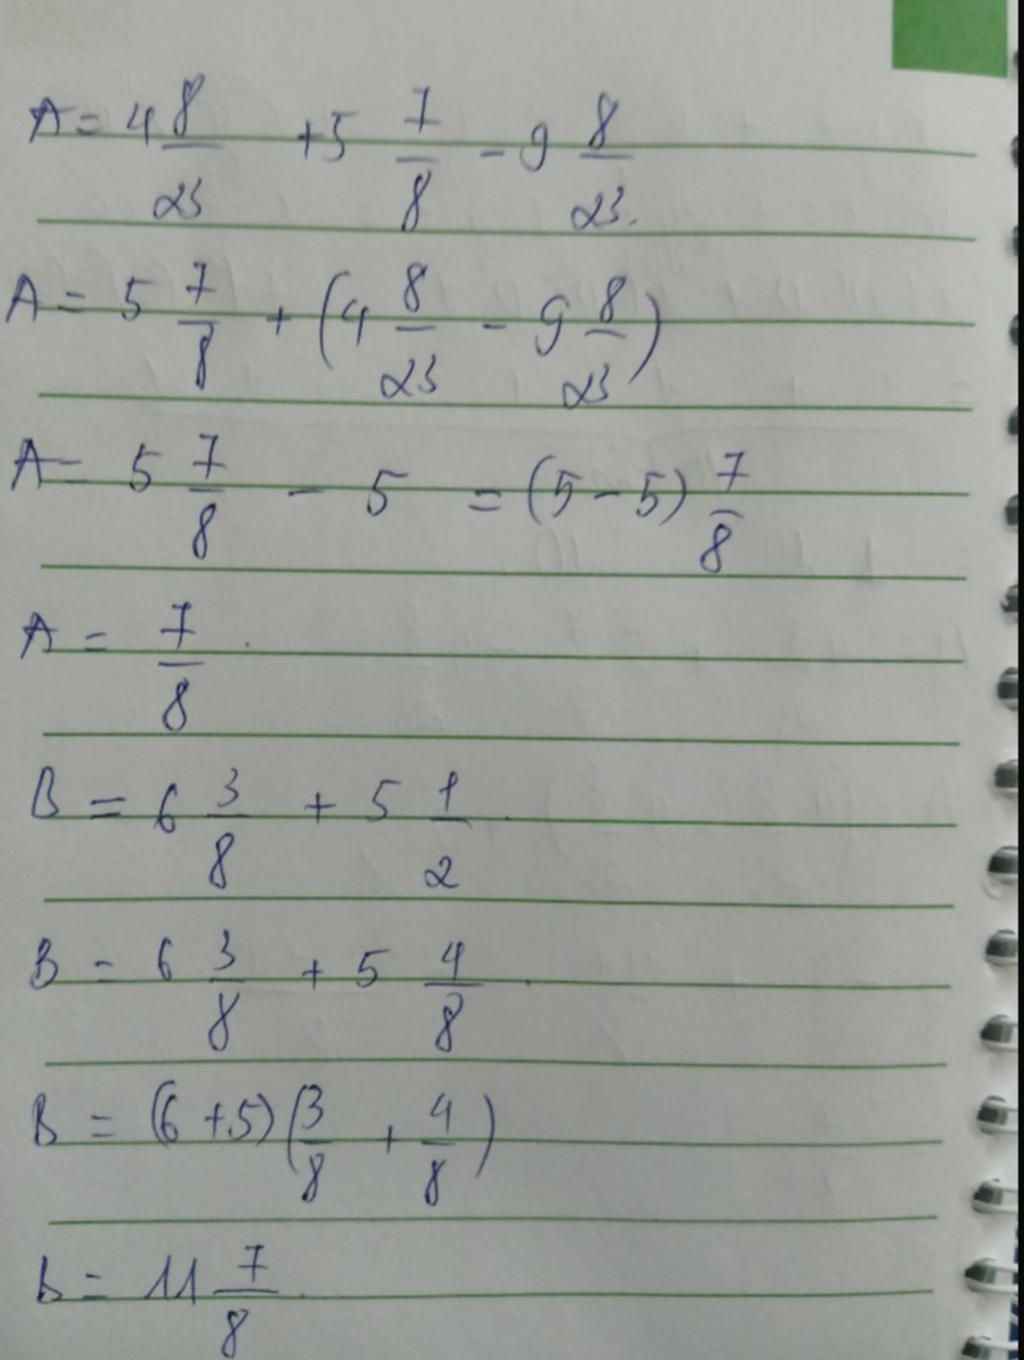 A = 4 8/23 + 5 7/8 - 9 8/23.
A = 5 7/8 + (4 8/23 - 9 8/23)
A = 5 7/8 - 5 = (5 - 5) 7/8
A = 7/8.
B = 6 3/8 + 5 1/2.
B = 6 3/8 + 5 4/8.
B = (6 + 5)(3/8 + 4/8)
B = 11 7/8.